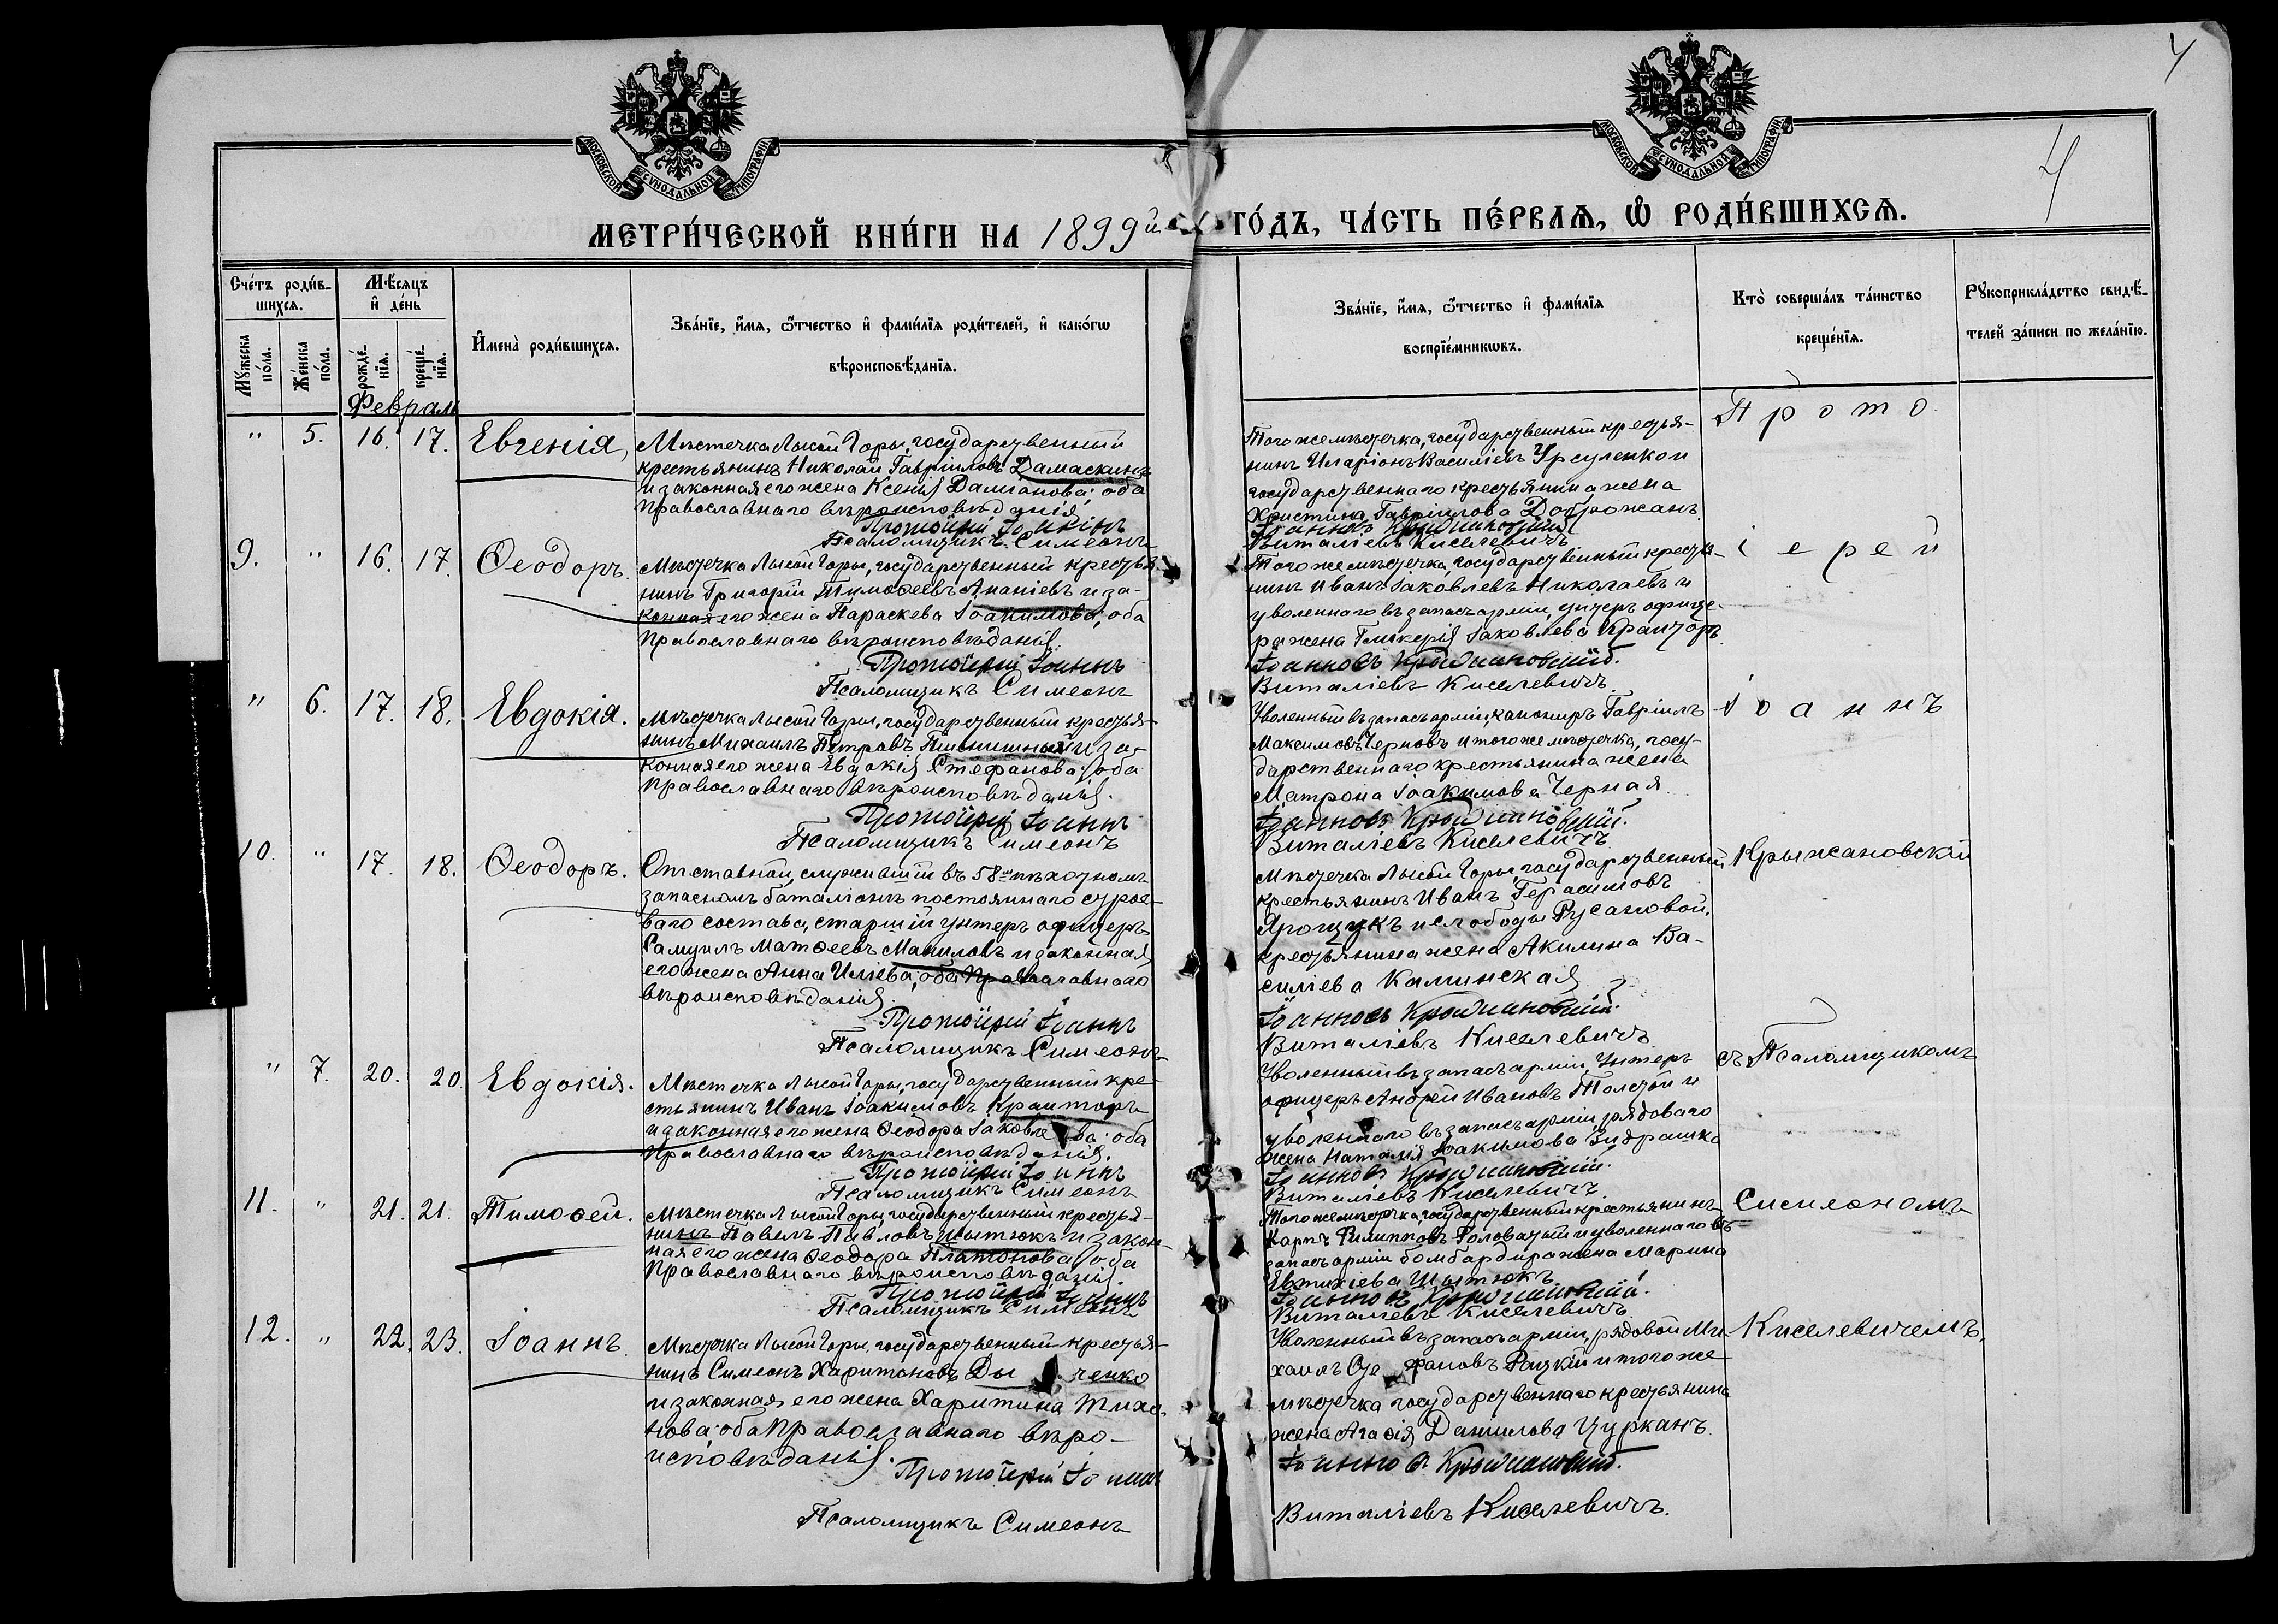 4
4
МОСКОВСКОЙ СУНОДАЛЬНОЙ ТИПОГРАФІИ
МОСКОВСКОЙ СУНОДАЛЬНОЙ ТИПОГРАФІИ
МЕТРИ́ЧЕСКОЙ КНИ́ГИ НА 1899й ГО́ДЪ, ЧА́СТЬ ПЕ́РВАѦ, Ѡ҆ РОДИ́ВШИХСѦ.
Сче́тъ роди́в-
шихсѧ.
Мꙋ́жеска по́ла.
Же́нска по́ла.
Мѣ́сѧцъ
и҆ де́нь
рожде́-нїѧ.
креще́-нїѧ.
И҆мена̀ роди́вшихсѧ.
Зва́нїе, и҆́мѧ, ѻ҆́тчество и҆ фами́лїѧ роди́телей, и҆ како́гѡ
вѣроисповѣ́данїѧ.
Зва́нїе, и҆́мѧ, ѻ҆́тчество и҆ фами́лїѧ
воспрїе́мникѡвъ.
Кто̀ соверша́лъ та́инство
креще́нїѧ.
Рꙋкоприкла́дство свидѣ́-
телей за́писи по жела́нїю.
Февраль
" 5. 16. 17. Евгенія,
Мѣстечка Лысой Горы, государственный
крестьянинъ Николай Гавріиловъ Дамаскинъ
и законная его жена Ксенія Даміанова; оба
Православнаго вѣроисповѣданія
Протоіерей Іоаннъ
Псаломщикъ Симеонъ
Того же мѣстечка, государственный крестья-
нинъ Иларіонъ Василіевъ Урсуленко и
государственнаго крестьянина жена
Христина Гавріилова Доброжанъ
Іоанновъ Крыжановскій
Виталіевъ Киселевичъ
Прото
9. " 16. 17. Ѳеодоръ.
Мѣстечка Лысой Горы, государственный крестья-
нинъ Григорій Тимоѳеевъ Ананіевъ и за-
конная его жена Параскева Іоакимова; оба
Православнаго вѣроисповѣданія.
Протоіерей Іоаннъ
Псаломщикъ Симеонъ
Того же мѣстечка, государственный крестья-
нинъ Иванъ Іаковлевъ Николаевъ и
уволеннаго въ запасъ арміи, унтеръ офице-
ра жена Гликерія Іаковлева Кранторъ.
Іоанновъ Крыжановскій.
Виталіевъ Киселевичъ
іерей
" 6. 17. 18. Евдокія.
Мѣстечка Лысой Горы, государственный крестья-
нинъ Михаилъ Петровъ Пшенишный и за-
конная его жена Евдокія Стефанова; оба
Православнаго вѣроисповѣданія.
Протоіерей Іоаннъ
Псаломщикъ Симеонъ
Уволенный въ запасъ арміи, канониръ Гавріилъ
Максимовъ Черновъ и того же мѣстечка, госу-
дарственнаго крестьянина жена
Матрона Іоакимова Черная.
Іоанновъ Крыжановскій.
Виталіевъ Киселевичъ
Іоаннъ
10. " 17. 18. Ѳеодоръ.
Отставной, служившій въ 58мъ пѣхотномъ
запасномъ баталіонѣ постояннаго строе-
ваго состава, старшій унтеръ офицеръ
Самуилъ Матѳеевъ Маниловъ и законная
его жена Анна Иліева; оба Православнаго
вѣроисповѣданія.
Протоіерей Іоаннъ
Псаломщикъ Симеонъ
Мѣстечка Лысой Горы, государственный
крестьянинъ Иванъ Герасимовъ
Ярощукъ и слободы Русановой,
крестьянина жена Акилина Ва-
силіева Каминская
Іоанновъ Крыжановскій.
Виталіевъ Киселевичъ
Крыжановскій
" 7. 20. 20. Евдокія.
Мѣстечка Лысой Горы, государственный кре-
стьянинъ Иванъ Іоакимовъ Кранторъ
и законная его жена Ѳеодора Іаковлева; оба
Православнаго вѣроисповѣданія.
Протоіерей Іоаннъ
Псаломщикъ Симеонъ
Уволенный въ запасъ арміи, Унтеръ
офицеръ Андрей Ивановъ Толстой и
уволеннаго въ запасъ арміи, рядоваго
жена Наталія Іоакимова
Іоанновъ Крыжановскій.
Виталіевъ Киселевичъ.
съ Псаломщикомъ
11. " 21. 21. Тимоѳей.
Мѣстечка Лысой Горы, государственный крестья-
нинъ Павелъ Павловъ Шытюкъ и закон-
ная его жена Ѳеодора Платонова; оба
Православнаго вѣроисповѣданія.
Протоіерей Іоаннъ
Псаломщикъ Симеонъ
Того же мѣстечка, государственный крестьянинъ
Карпъ Филипповъ Головатый и уволеннаго въ
запасъ арміи бомбардира жена Марина
Евтихіева Шытюкъ
Іоанновъ Крыжановскій.
Виталіевъ Киселевичъ
Симеономъ
12. " 22. 23. Іоаннъ.
Мѣстечка Лысой Горы, государственный крестья-
нинъ Симеонъ Харитоновъ Ды ченко
и законная его жена Харитина Тихо-
нова; оба Православнаго вѣро-
исповѣданія.
Протоіерей Іоаннъ
Псаломщикъ Симеонъ
Уволенный въ запасъ арміи, рядовой Ми-
хаилъ Стефановъ Рацкій и того же
мѣстечка государственнаго крестьянина
жена Агаѳія Даніилова Цурканъ.
Іоанновъ Крыжановскій.
Виталіевъ Киселевичъ.
Киселевичемъ.